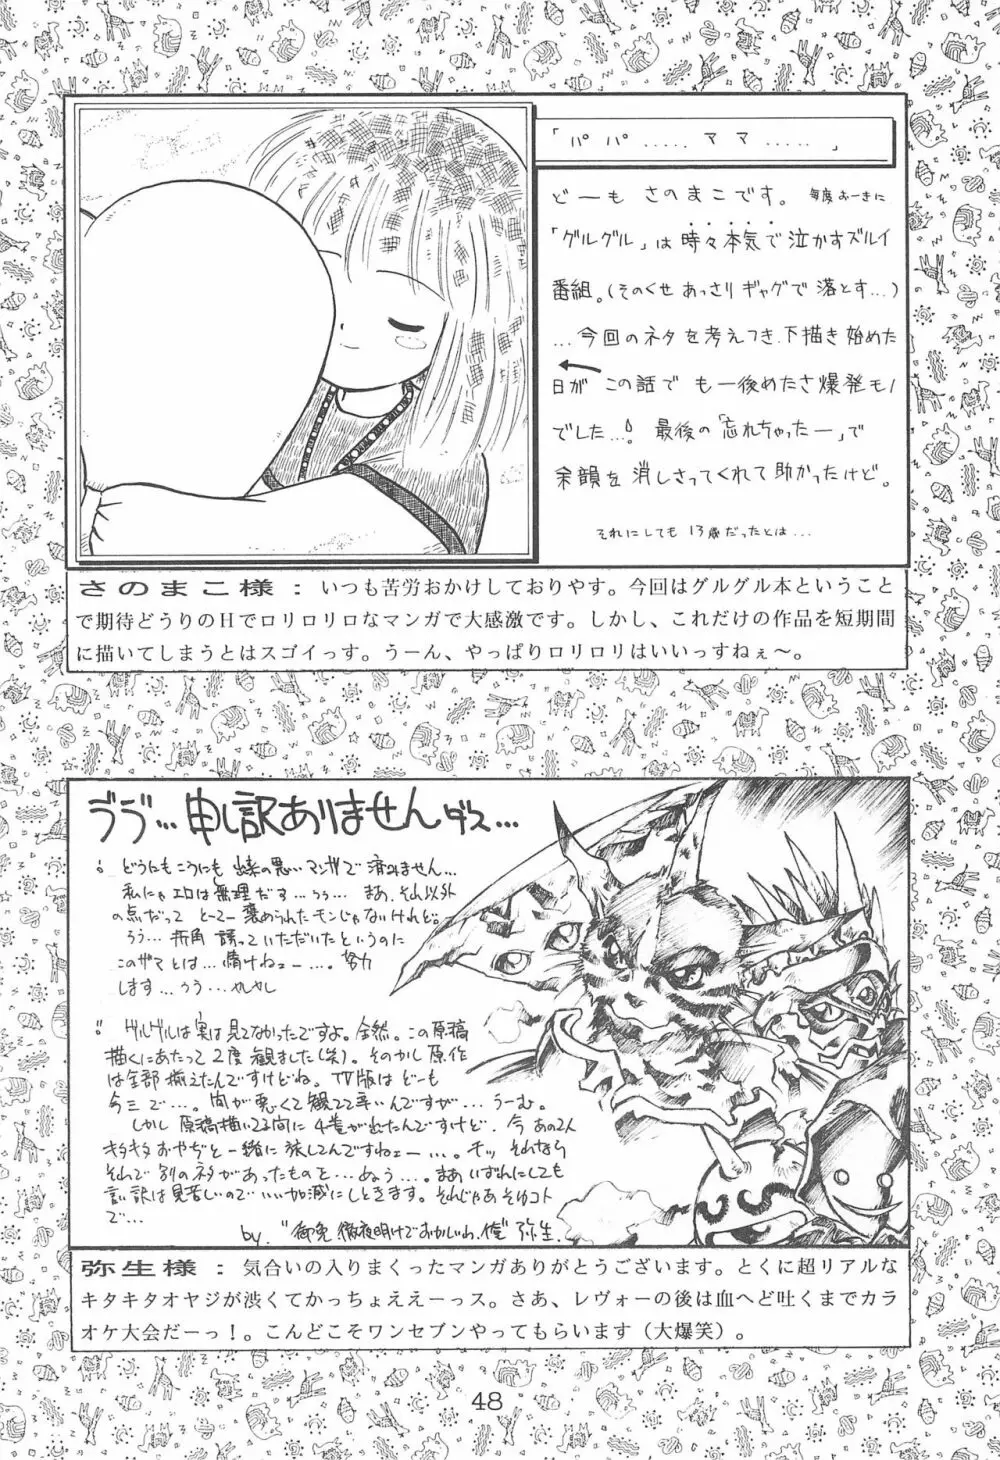 「パパ..... ママ.....」
どーも さのまこです。 毎度おーきに
「グルグル」は時々本気で泣かすズルイ
番組。(そのくせ あっさり ギャグで 落とす...)
...今回のネタを考えつき、下描き始めた
日が この話で も一後めたさ爆発モノ
でした...。 最後の「忘れちゃったー」で
余韻を 消しさってくれて助かったけど。
それにしても 13歳だったとは...
さのまこ様：いつも苦労おかけしておりやす。今回はグルグル本ということ
で期待どうりのＨでロリロリロなマンガで大感激です。しかし、これだけの作品を短期間
に描いてしまうとはスゴイっす。うーん、やっぱりロリロリはいいっすねぇ〜。
ゔゔ...申し訳ありませんダス...
どうにもこうにも 出来の悪いマンガで 済みません...
私にゃエロは無理だす...うぅ... まあ、それ以外
の点だって とてー 褒められたモンじゃないけれど。
うう... 折角 誘っていただいたというのに
このザマとは... 情けねェー...。努力
します...うう...
グルグルは実は見てなかったですよ。全然。この原稿
描くにあたって 2度 観ました(笑)。そのかし 原作
は全部 揃えたんですけどね。TV版は どーも
今三で...。間が悪くて観てて辛いんですが... うーむ。
しかし 原稿描いてる間に 4巻がでたんですけど、今 あの2人
キタキタおやぢと一緒に旅してんですねェー...。 それなら
それで別のネタがあったものを...ぬぅ...。まあいずれにしても
言い訳は見苦しいので いい加減にしときます。そんじゃあ そゆコト
で...
by. "御免 徹夜明けでおかしいわ、俺" 弥生.
弥生様：気合いの入りまくったマンガありがとうございます。とくに超リアルな
キタキタオヤジが渋くてかっちょええーっス。さあ、レヴォーの後は血へど吐くまでカラ
オケ大会だーっ！。こんどこそワンセブンやってもらいます（大爆笑）。
48